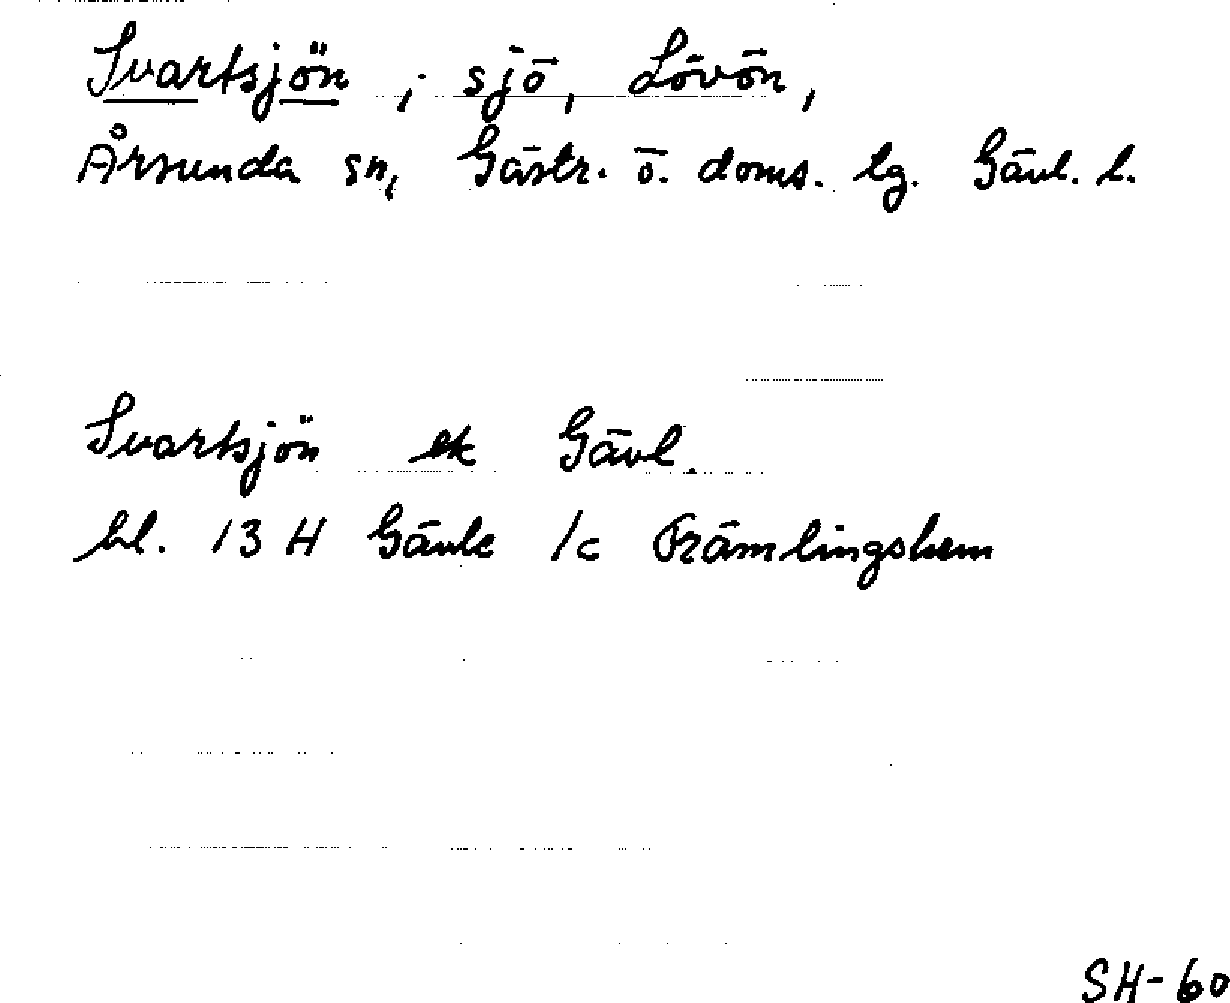 Svartsjön ; sjö, Lövön,
Årsunda sn, Gästr. ö. doms. lg. Gävl. l.
Svartsjön ek Gävl.
bl. 13 H Gävle 1c Främlingshem
SH-60